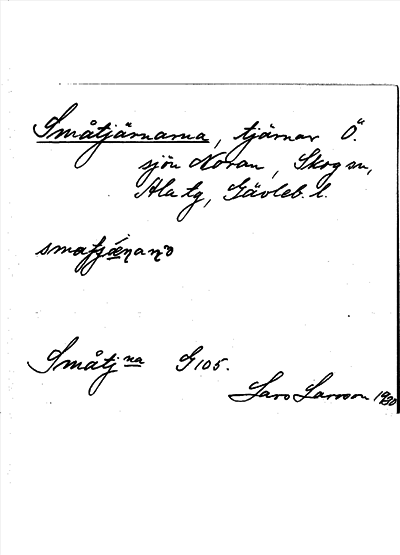 Småtjärnarna, tjärnar Ö.
sjön Noran, Skog sn,
Ala tg, Gävleb. l.
Småtjna G105.
Lars Larsson 1930